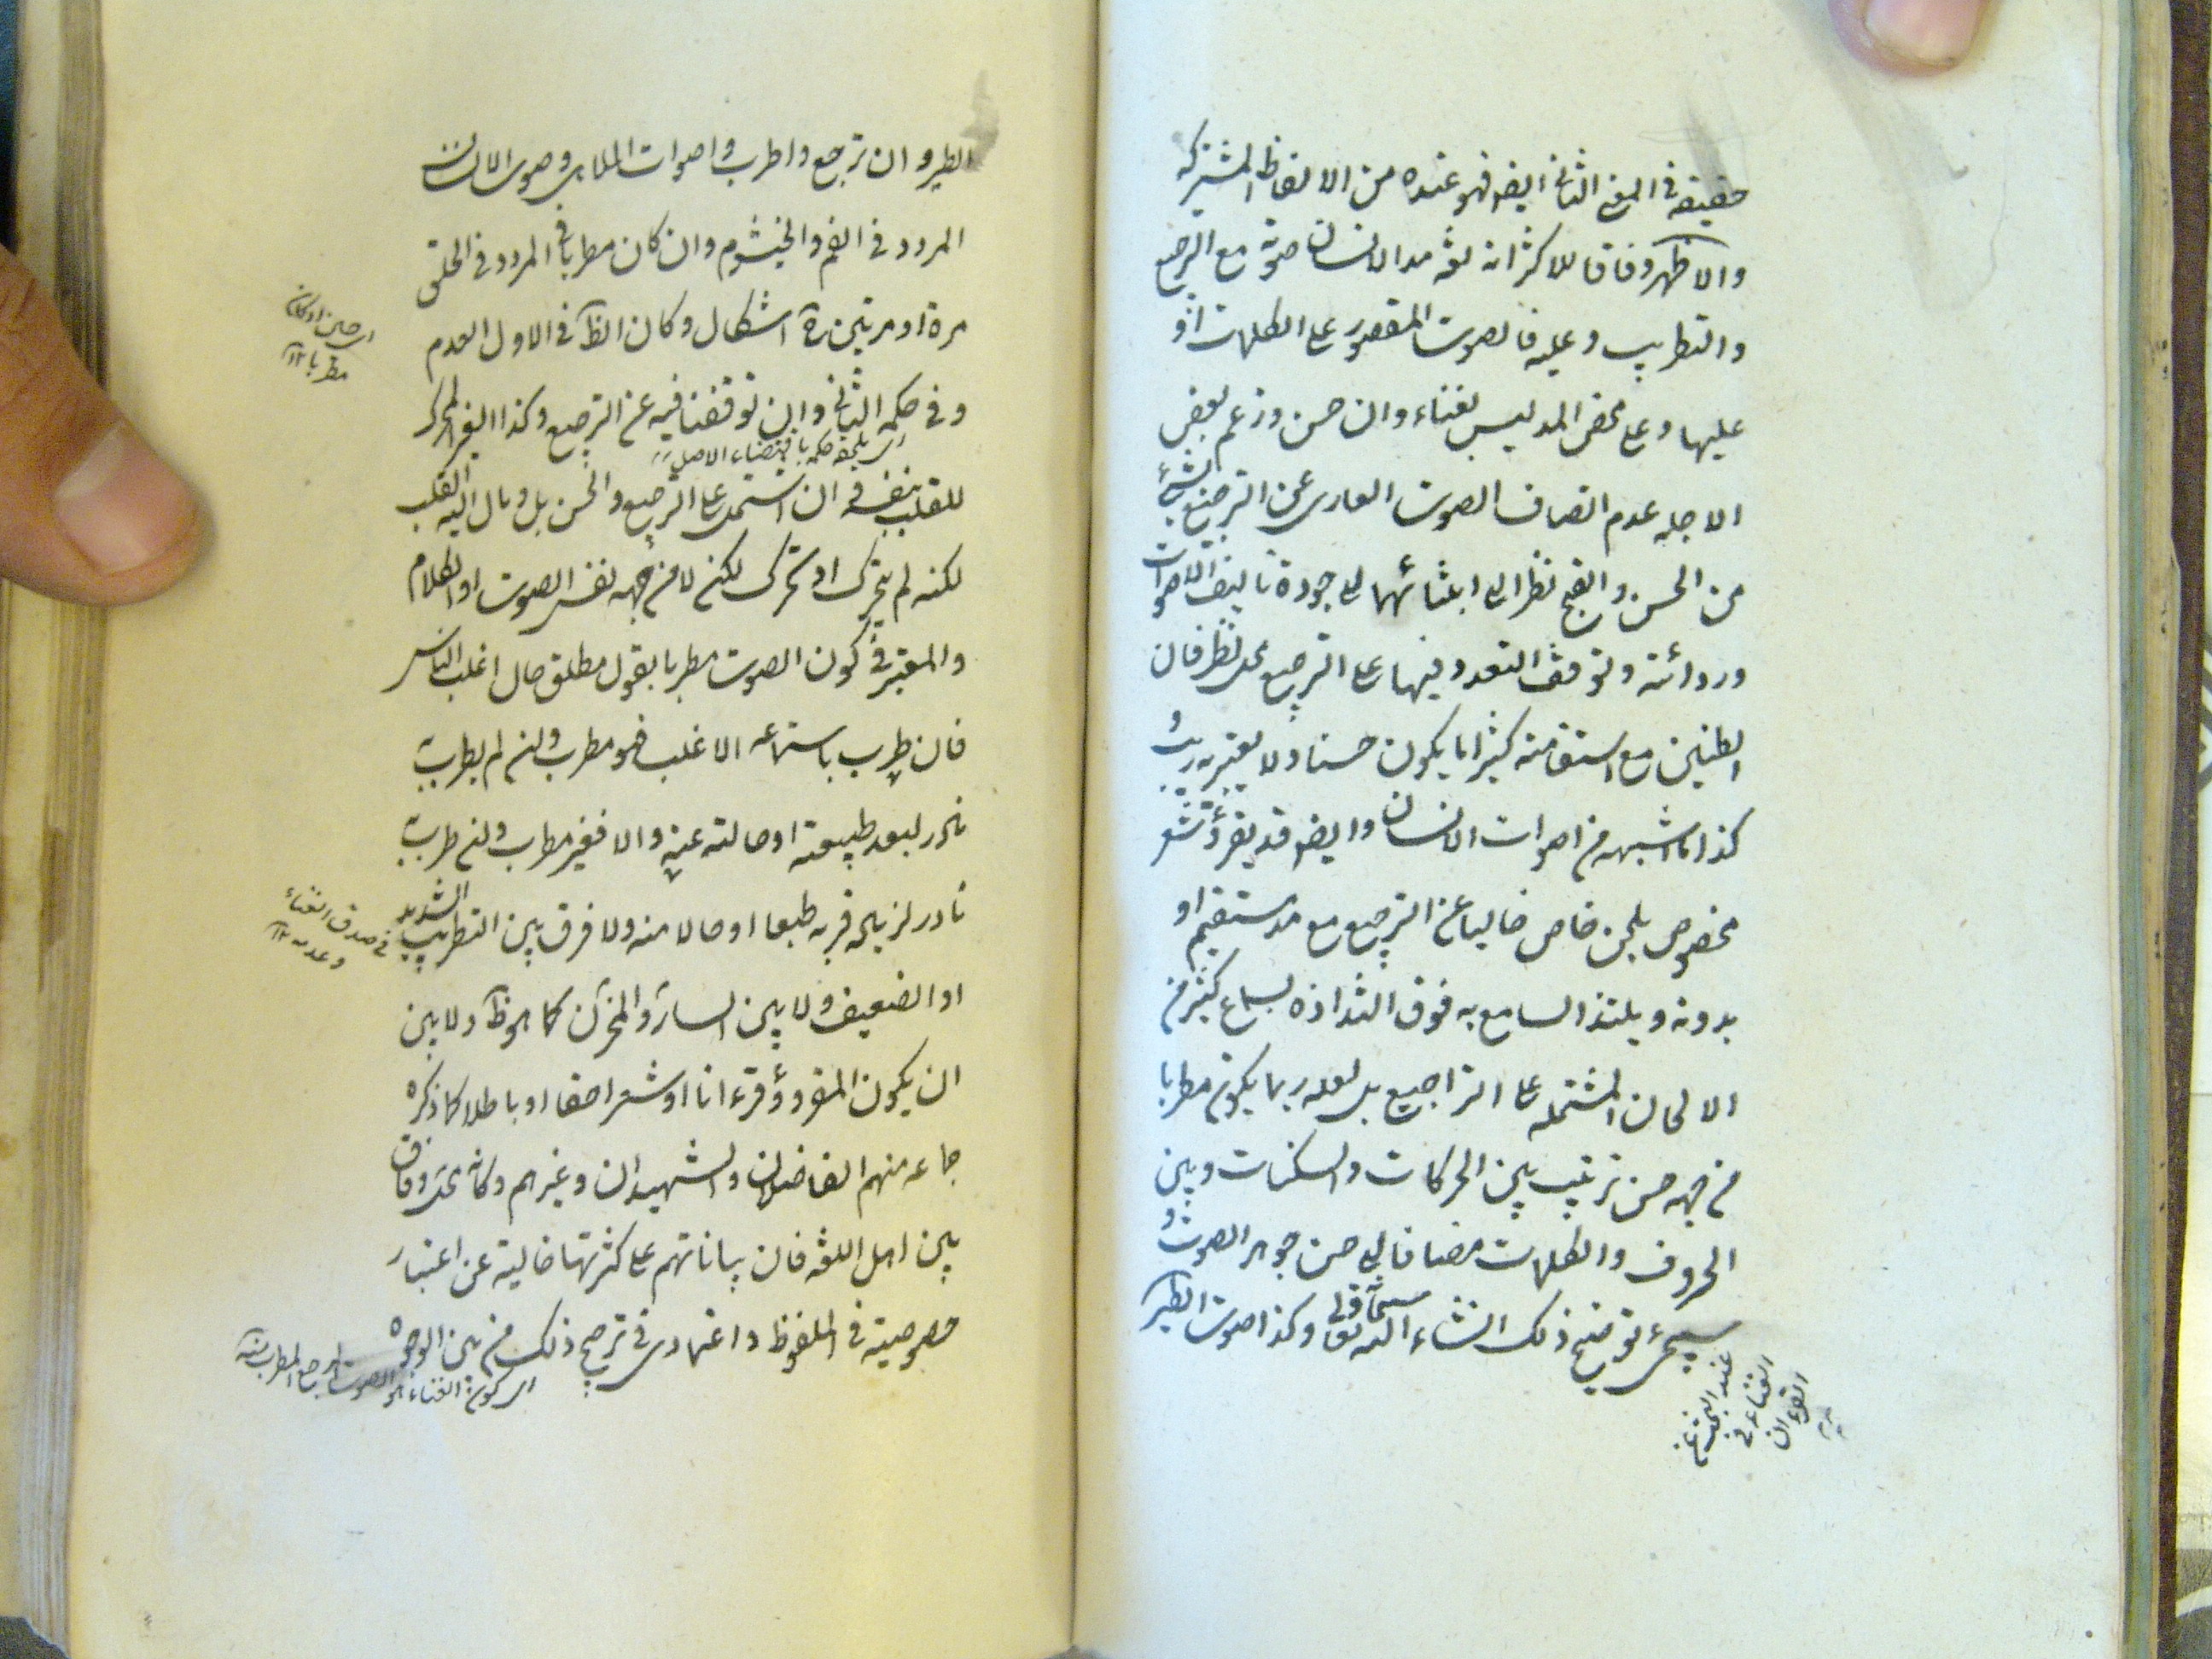 حقيقة في المعنى الثاني ايضا فهو عنده من الالفاظ المشتركه
والاظهر وفاقا للاكثر انه لغة مد الانسان صوته مع الترجيع
والتطريب وعليه فالصوت المقصور على الكلمات او
عليها وعلى محض المد ليس بغناء وان حسن وزعم بعض
الاجله عدم اتصاف الصوت العارى عن الترجيع بشئ
من الحسن والقبح نظرا الى ابتنائهما على جودة تاليف الاصوات
وردائته وتوقف التعدد فيها على الترجيع محل نظر فان
الطنين مع استقامته كثيرا ما يكون حسنا ولا يعتريه ريب و
كذا ما اشبهه من اصوات الانسان وايضا قد يقرؤ شعر
مخصوص بلحن خاص خاليا عن الترجيع مع مد مستقيم او
بدونه ويلتذ السامع به فوق التذاذه بسماع كثير من
الالحان المشتمله على التراجيع بل لعله ربما يكون مطربا
من جهه حسن ترتيب بين الحركات والسكنات وبين
الحروف والكلمات مضافا الى حسن جوهر الصوت و
سيجئ توضيح ذلك انشاء الله تعالى وكذا صوت الطير
عند البحث عن
الغناء في
القرءان
الطير وان ترجع واطرب واصوات الملاهى وصوت الانسان
المردد في الفم والخيشوم وان كان مطربا وفي المردد في الحلق
مرة او مرتين اشكال وكان الظ في الاول العدم
اى حين اذ كان
مطربا ١٢
وفي حكمه الثاني وان توقفنا فيه عن الترجيع وكذا الغير المحرك
اى يلحقه حكمه باقتضاء الاصل
للقلب بنفسه وان اشتمل على الترجيع والحسن بل ومال اليه القلب
لكنه لم يتحرك او تحرك لكن لا من جهه نفس الصوت او الكلام
والمعتبر في كون الصوت مطربا بقول مطلق حال اغلب الناس
فان طرب باستماعه الاغلب فهو مطرب وان لم يطرب به
نادر لبعد طبيعته او حالته عنه والا فغير مطرب وان طرب به
نادر لمزيد قربه طبعا او حالا منه ولا فرق بين التطريب الشديد
في صدق الغناء
وعدمه ١٢
او الضعيف ولا بين السار والمحزن كما هو ظ ولا بين
ان يكون المقروؤ قرءانا او شعرا حقا او باطلا كما ذكره
جماعه منهم الفاضلان والشهيدان وغيرهم وكانه محل وفاق
بين اهل اللغه فان بياناتهم على كثرتها خالية عن اعتبار
خصوصية في الملفوظ واعتمادى في ترجيح ذلك من بين الوجوه
اى كون الغناء هو الصوت المرجع المطرب